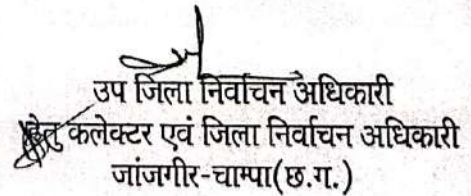 उप जिला निर्वाचन अधिकारी
हेतु कलेक्टर एवं जिला निर्वाचन अधिकारी
जांजगीर-चाम्पा(छ.ग.)